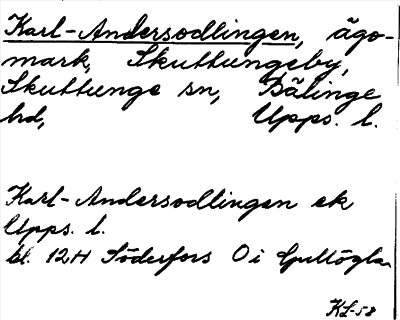 Karl-Andersodlingen, ägo-
mark, Skuttungeby,
Skuttunge sn, Bälinge
hd, Upps. l.
Karl-Andersodlingen ek
Upps. l.
bl. 12H Söderfors O i
KL-58